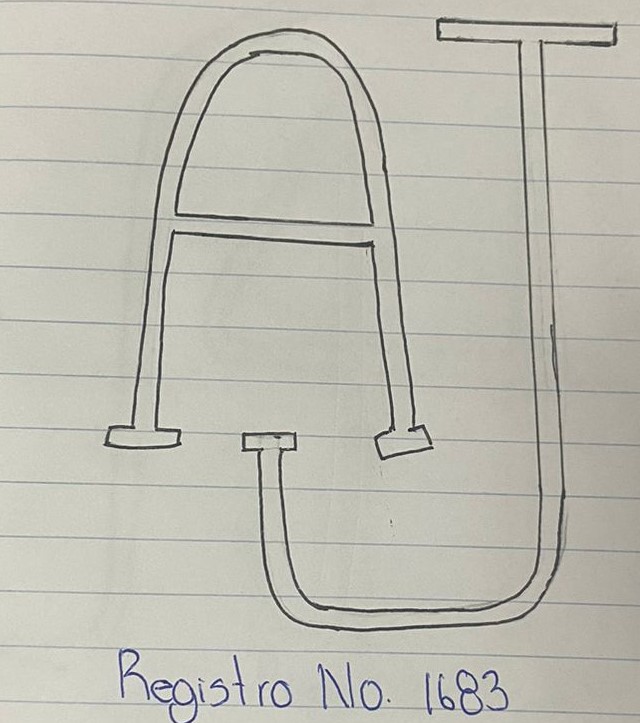 AJ
Registro No. 1683